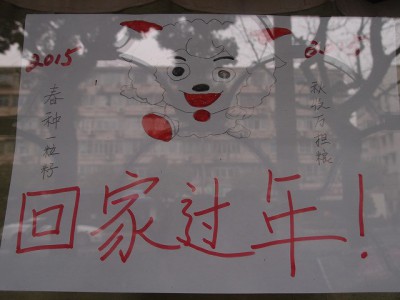 2015
春种一粒籽
秋收万担粮
回家过年！